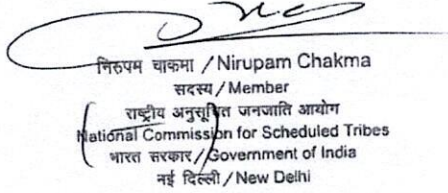 निरुपम चाकमा / Nirupam Chakma
सदस्य / Member
राष्ट्रीय अनुसूचित जनजाति आयोग
National Commission for Scheduled Tribes
भारत सरकार / Government of India
नई दिल्ली / New Delhi